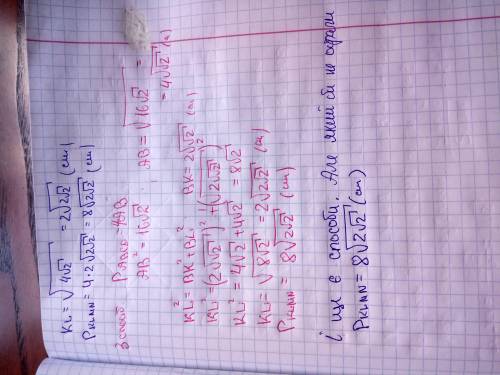 KL = √4√2 = 2√2√2 (см)
PKLMN = 4·2√2√2 = 8√2√2 (см)
3 спосіб PABCD = 4AB
AB² = 16√2 AB = √16√2 =
= 4√√2 (см)
KL² = BK² + BL² BK = 2√√2 (см)
KL² = (2√√2)² + (2√√2)²
KL² = 4√2 + 4√2 = 8√2
KL = √8√2 = 2√2√2 (см)
PKLMN = 8√2√2 (см)
і ще є способи. Але який би не обрали
PKLMN = 8√2√2 (см)